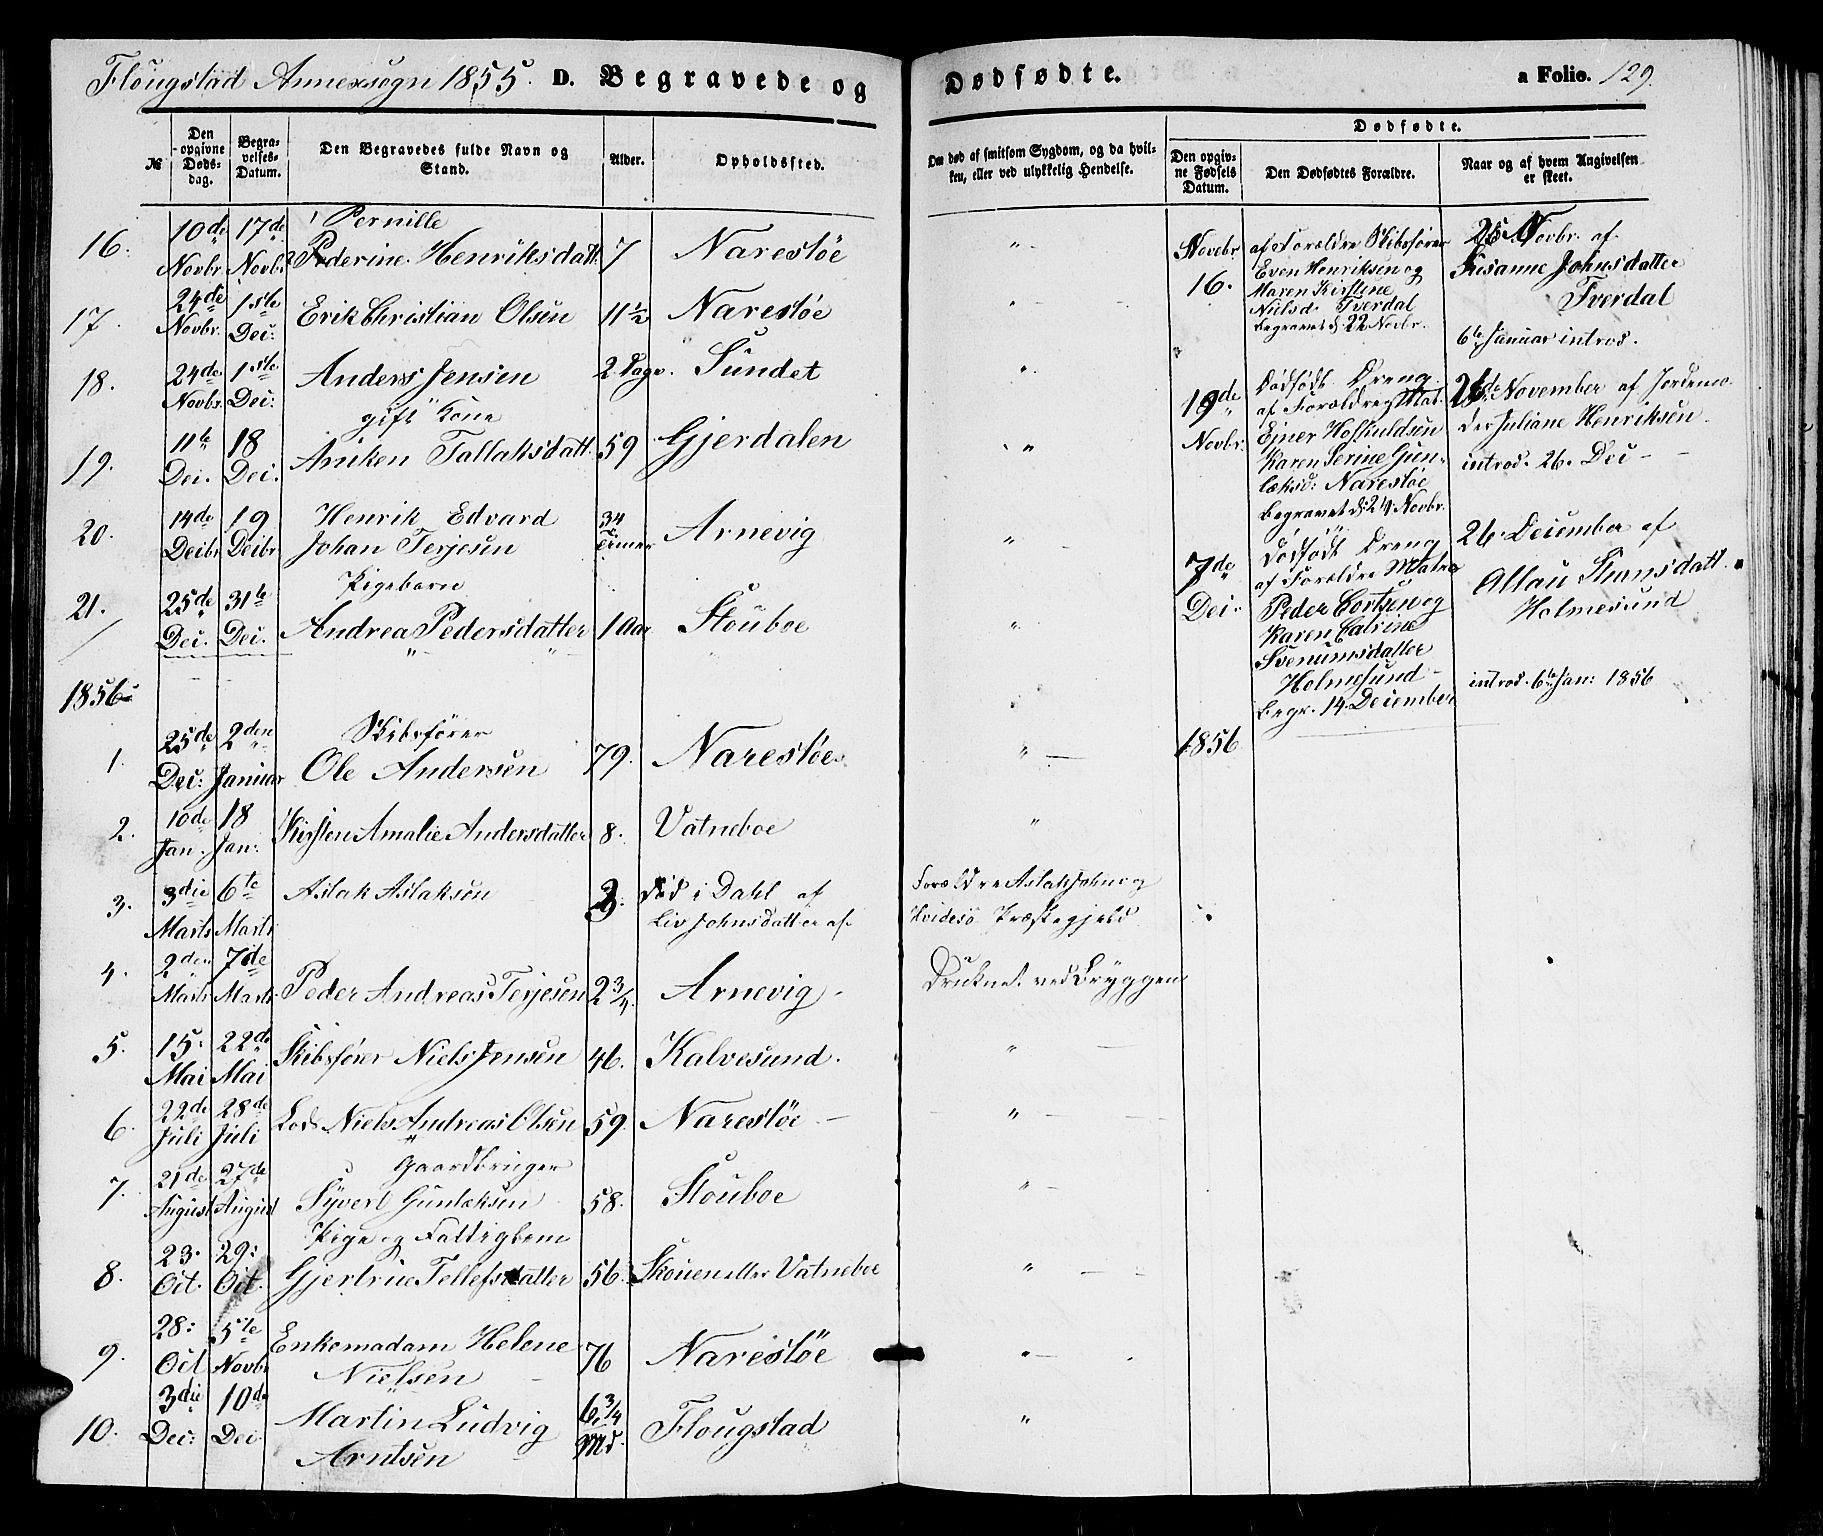 Flougstad Annexsogn 1855. D. Begravede og Dødfødte. a Folio. 129.
№ Den opgivne Døds-dag. Begra-velses-Datum. Den Begravedes fulde Navn og Stand. Alder. Opholdssted. Om død af smitsom Sygdom, og da hvil-ken, eller ved ulykkelig Hendelse. Dødfødte.
Den opgiv-ne Fødsels Datum. Den Dødfødtes Forældre. Naar og af hvem Angivelsen er skeet.
16. 10de Novbr. 17de Novbr. Pernille
Pederine Henriksdatt. 7 Narestøe "
17. 24de Novbr. 1ste Dec: Erik Christian Olsen 11½ Narestøe "
18. 24de Novbr. 1ste Dec: Anders Jensen 2 Dage. Sundet "
19. 11te Dec. 18 Dec. gift Kone
Aniken Tallaksdatt. 59 Gjerdalen "
20. 14de Decbr. 19 Decbr. Henrik Edvard
Johan Terjesen 34 Timer Arnevig "
21. 25de Dec. 31te Dec. Pigebarn
Andrea Pedersdatter 1 Aar Stouboe "
1856
1. 25de Dec: 2den Januar Skibsfører
Ole Andersen 79. Narestøe "
2. 10de Jan. 18 Jan: Kirsten Amalie Andersdatter 8. Vatneboe "
3. 3die Marts 6te Marts Aslak Aslaksen 3. Død i Dahl af
Liv Johnsdatter af Forældre Aslak John og
Hvidesø Præstegjeld
4. 2den Marts 7de Marts Peder Andreas Terjesen 2¾. Arnevig Druknet ved Bryggen
5. 15. Mai 22de Mai Skibsfører Niels Jensen 46. Kalvesund. "
6. 22de Juli 28de Juli Lods Niels Andreas Olsen 59. Narestøe "
7. 21de August 27de August Gaardbruger
Syvert Gunleksen 58. Stouboe "
8. 23. Oct. 29: Oct. Pige og Fattiglem
Gjertrue Tellefsdatter 56. Skouen eller Vatneboe "
9. 28: Oct 5te Novbr Enkemadam Helene
Nielsen 76 Narestöe "
10. 3die Dec: 10de Dec. Martin Ludvig
Arntsen 6¾ Md. Flougstad "
Novbr 16. af Forældre Skibsfører
Even Henriksen og
Maren Kirstine
Nielsd. Tverdal
begravet d. 22 Novbr.
Novbr. af
Susanne Johnsdatter
Tverdal
6te Januar introd.
19de Novbr. Dødfødt Dreng
af Forældre Mat.
Ejner
Karen Serine Gun-
læksd: Narestøe
begravet d: 24 Novbr.
November af Jordemo-
der Juliane Henriksen
introd. 26. Dec
7de Dec. Dødfødt Dreng
af Forældre Matro
Peder og
Karen Catrine
Svenumsdatter
Holmesund
begr. 14. December
26. December af
Holmesund
introd. 6te Jan: 1856
1856